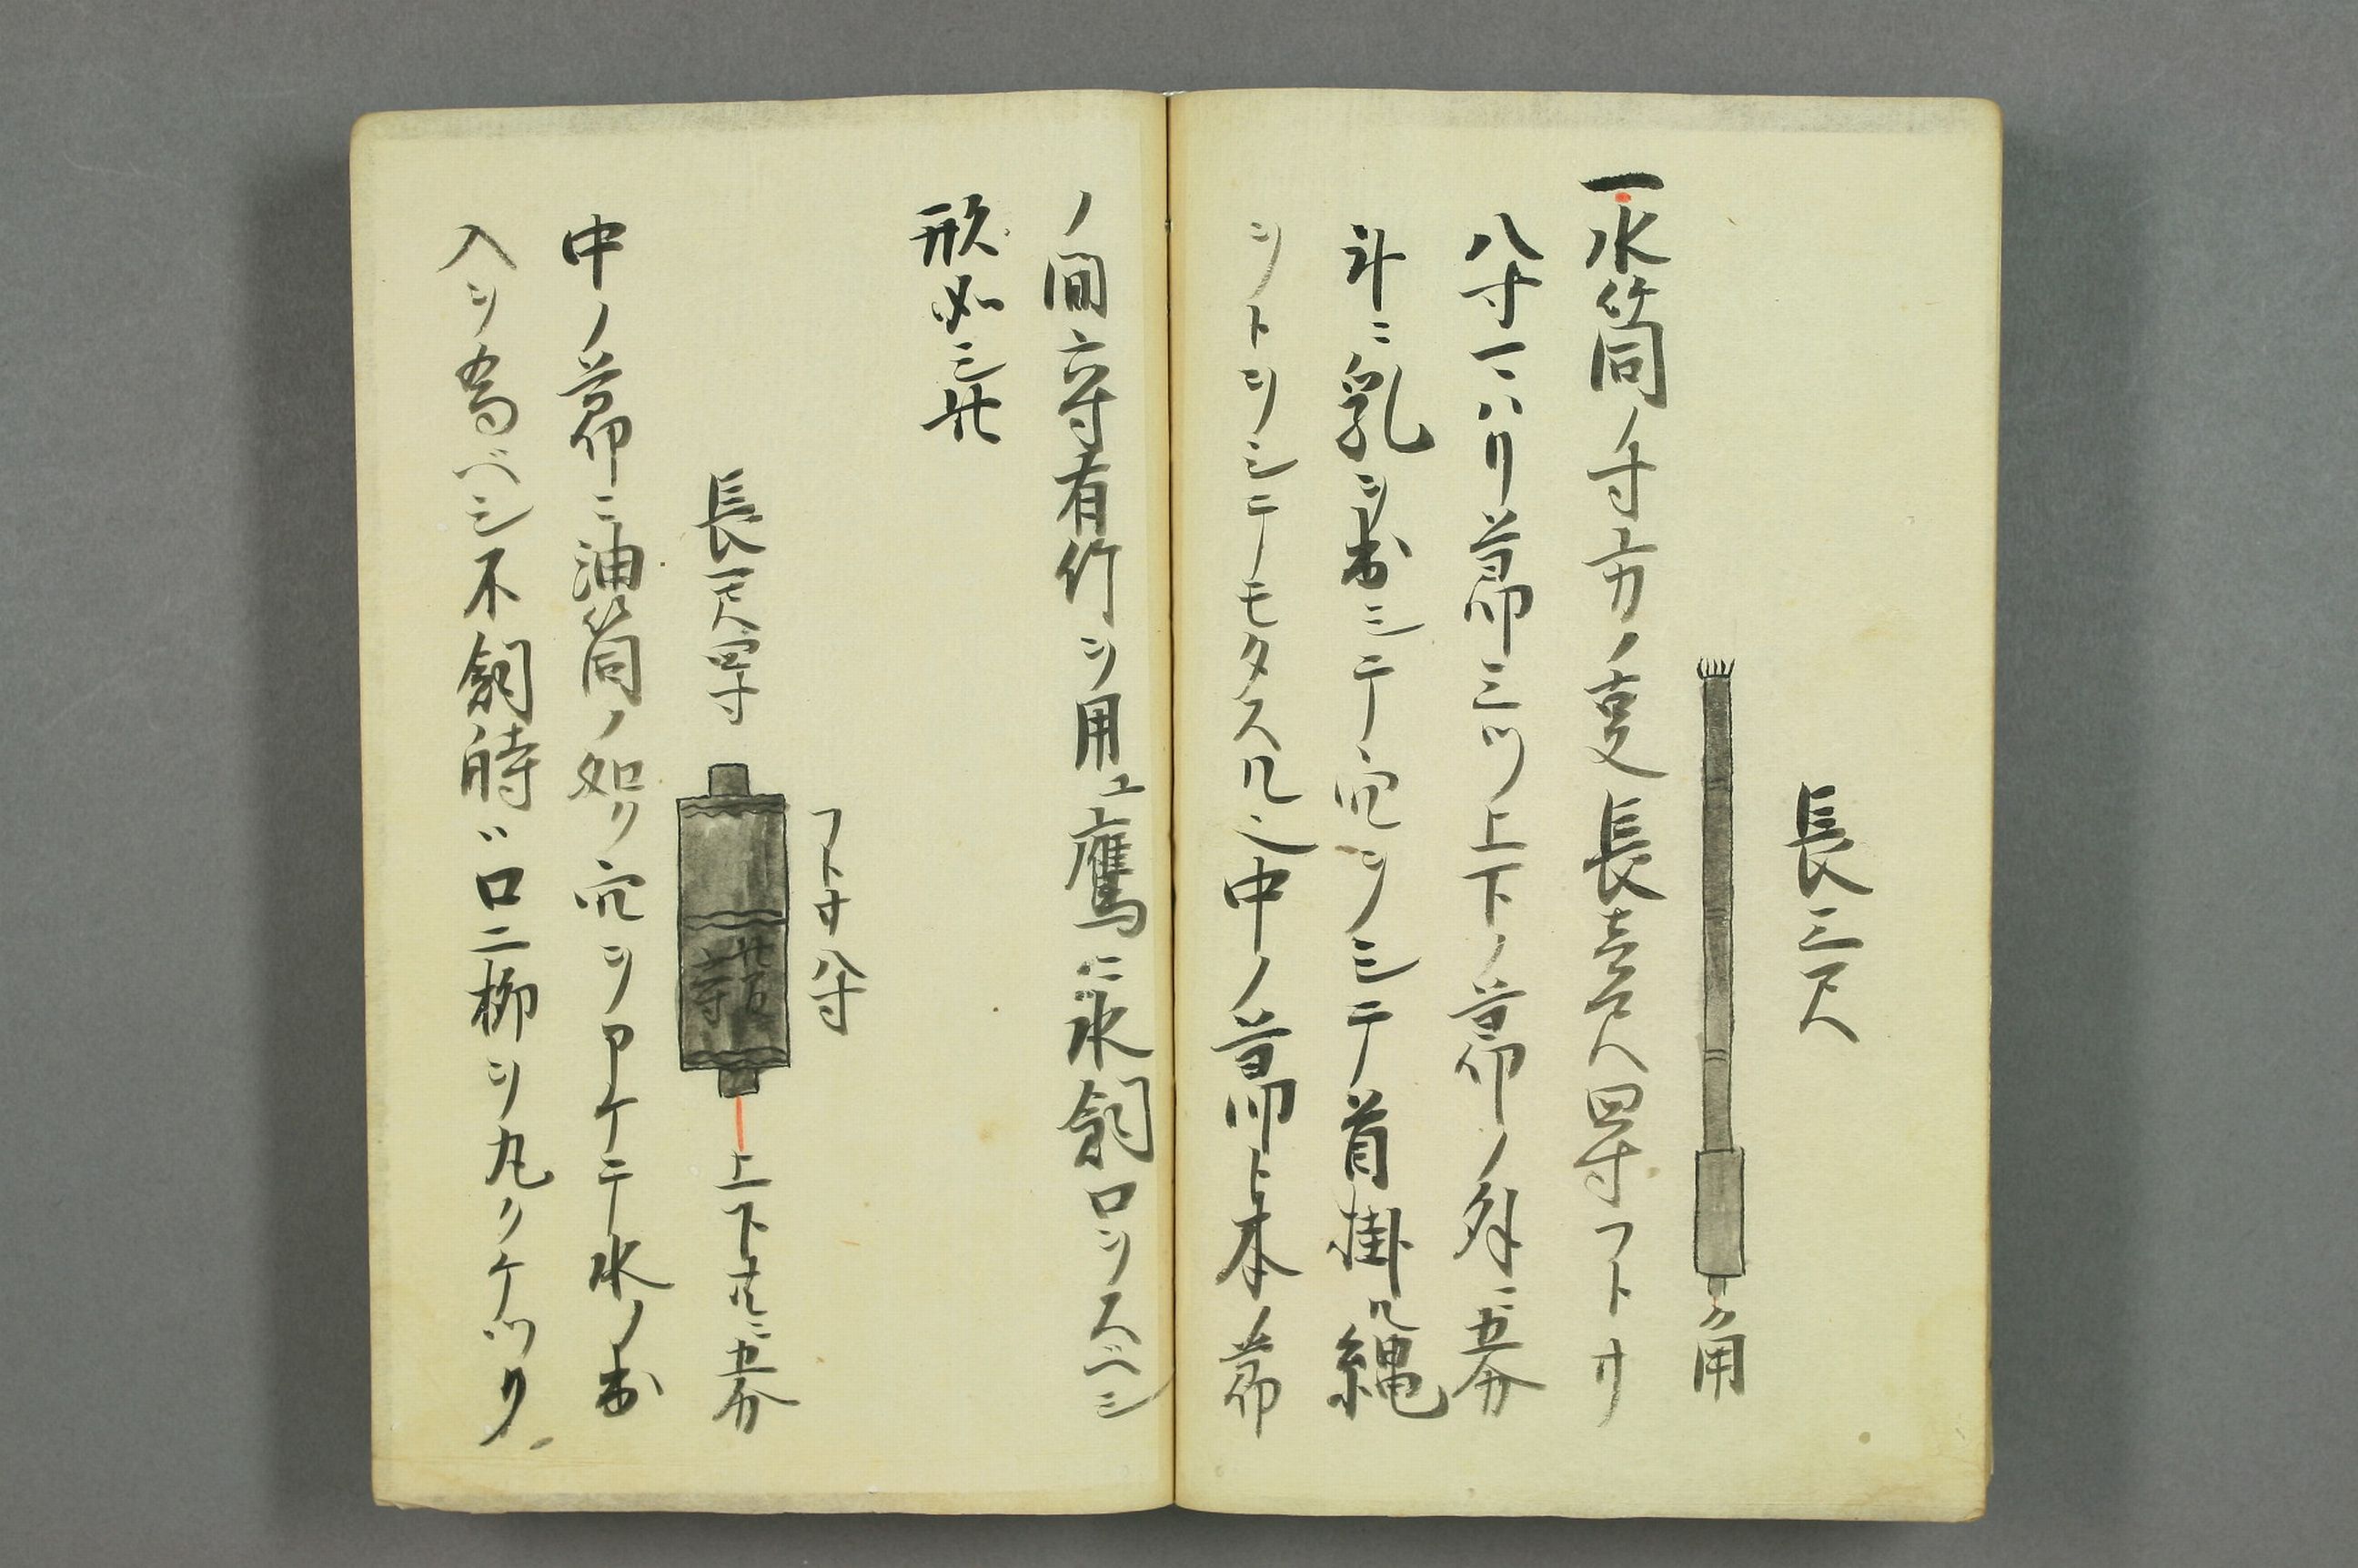 長三尺
角
一水筒ノ寸方ノ叓長壱尺四寸フトサ
八寸一ハリ節三ツ上下ノ節ノ外ニ五分
斗ニ乳ヲ出シテ穴ヲシテ首掛ル縄
ヲトヲシテモタスル之中ノ節ト本ノ節
ノ間六寸有竹ヲ用ユ鷹ニ水飼口ヲスベシ
形如三此
フトサ八寸
長一尺四寸
此間六寸
上下共ニ五分
中ノ節ニ油筒ノ如ク穴ヲアケテ水ノ出
入ヲ為ベシ不飼時ハ口ニ柳ヲ丸クケツリ